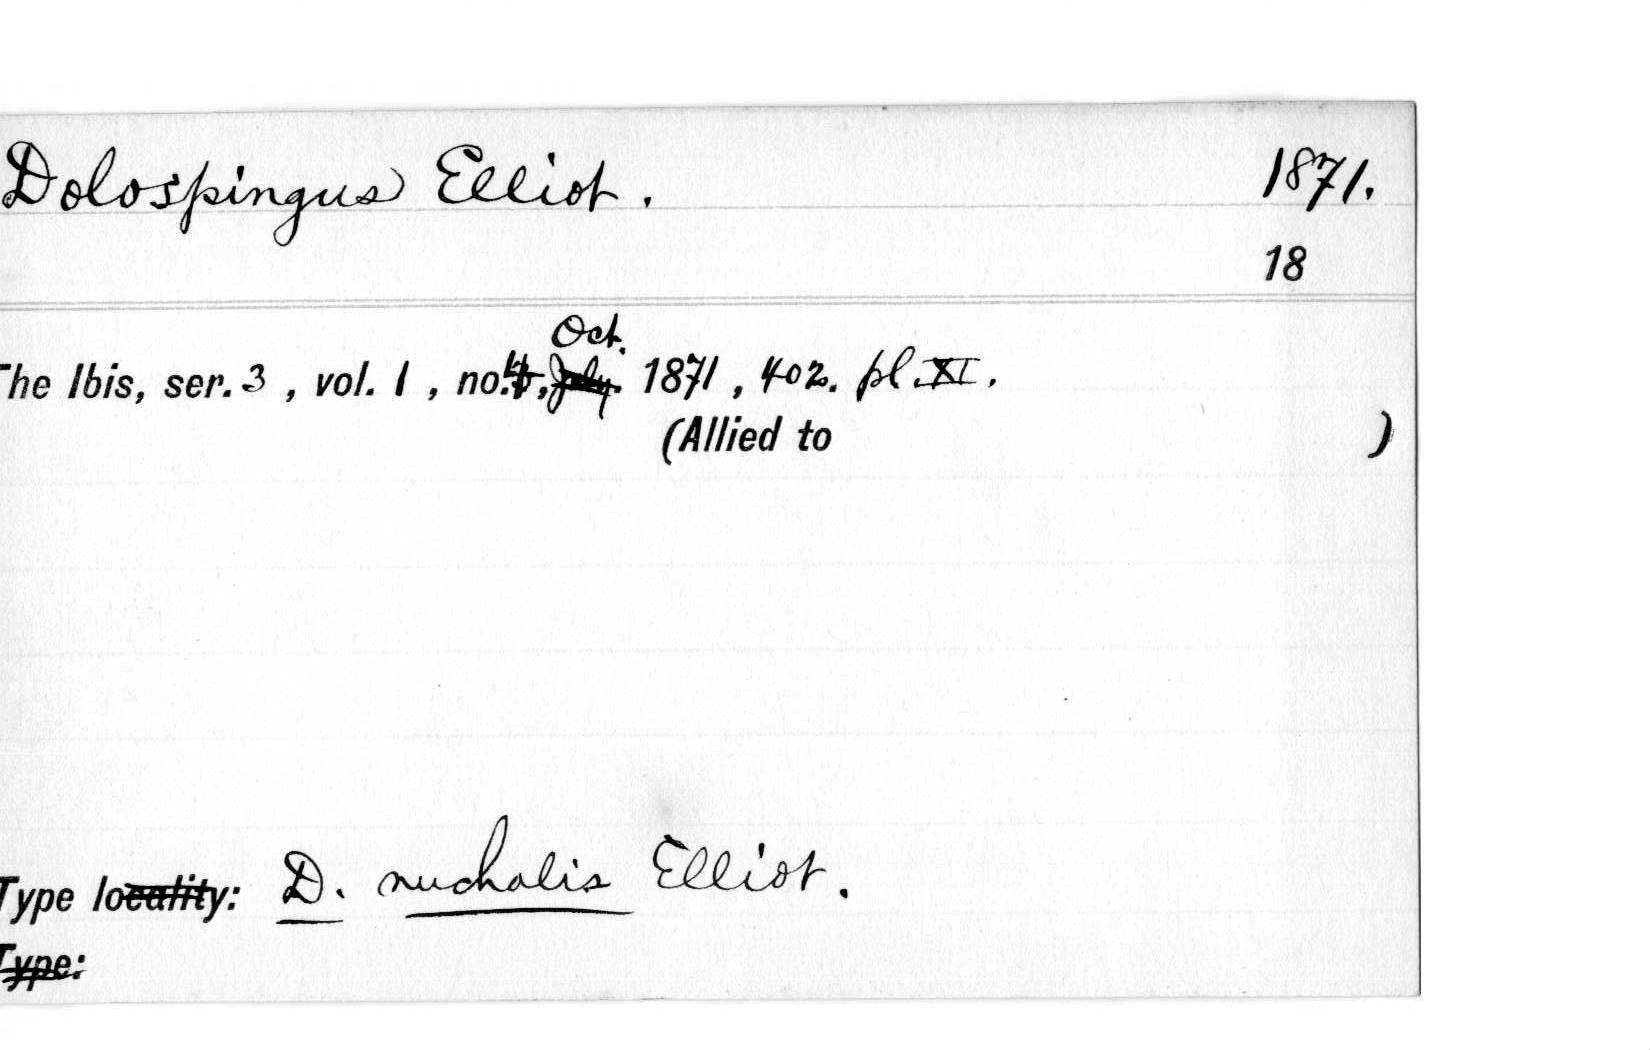 Dolospingus Elliot. 1871.
18
Oct.
The Ibis, ser. 3, vol. 1, no. 4, July. 1871, 402. pl. XI.
(Allied to )
Type locality: D. nuchalis Elliot.
Type: